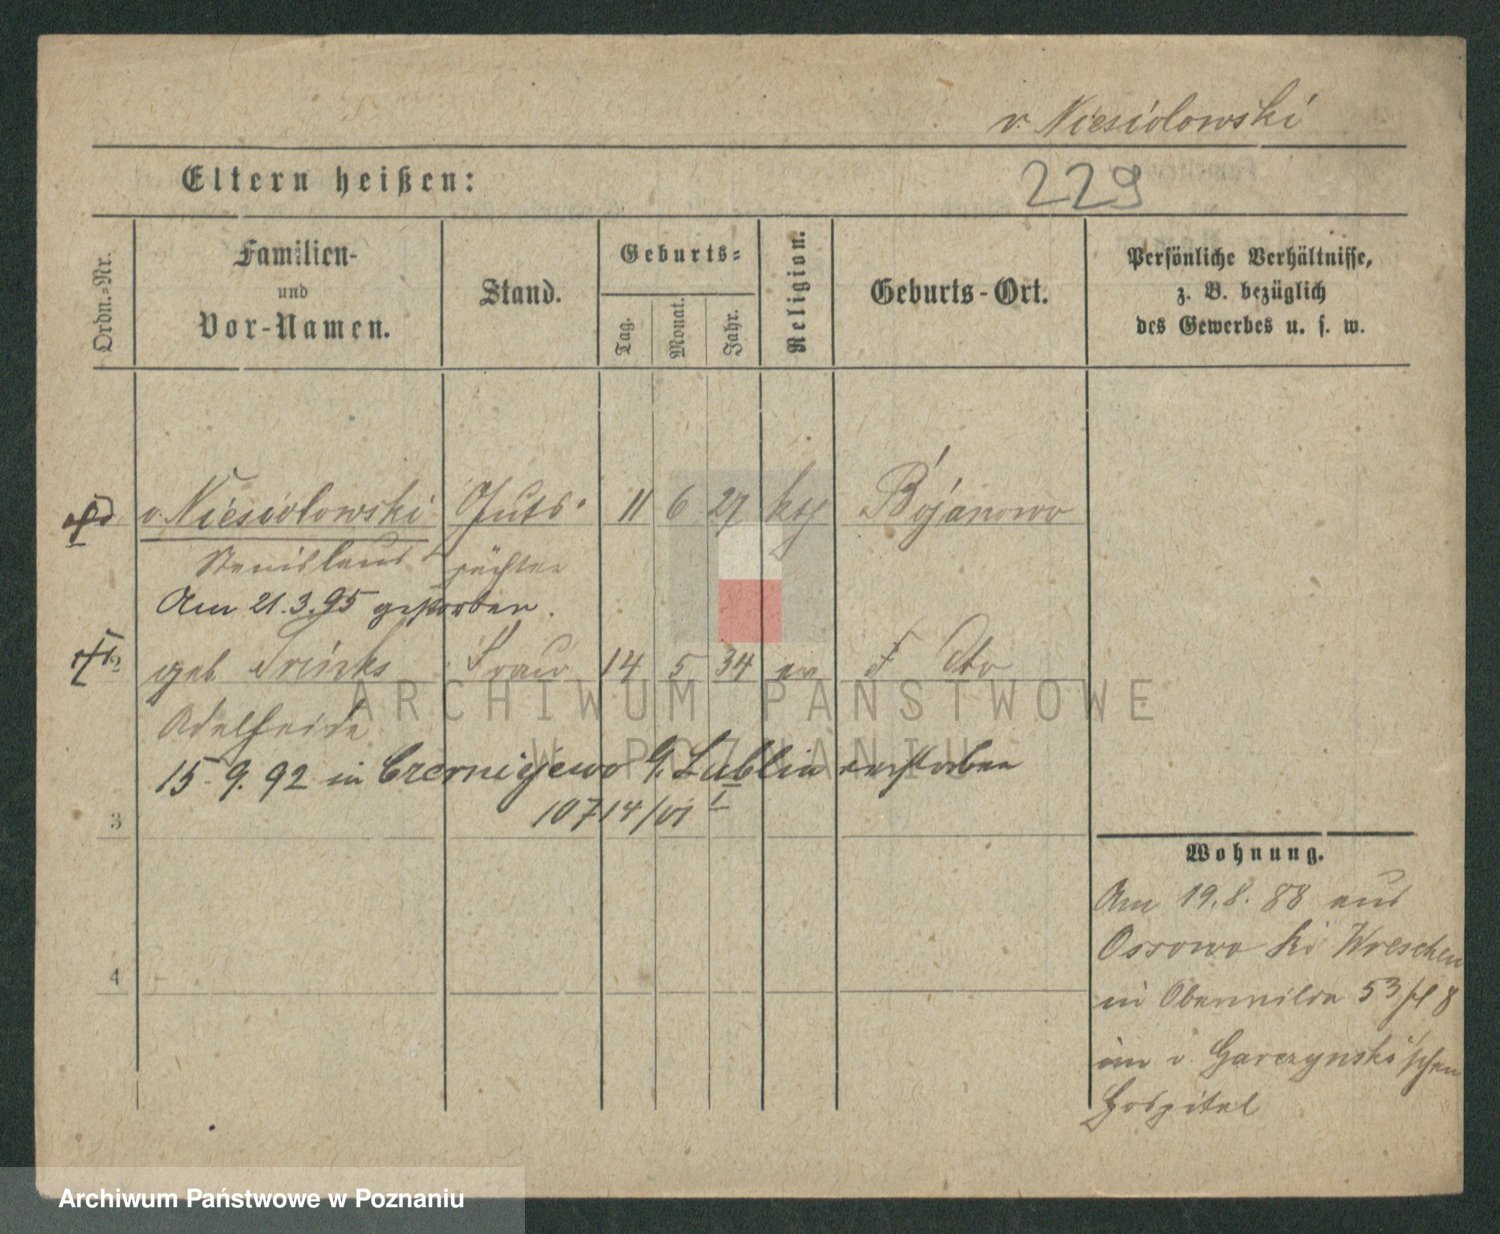 v. Niesiolowski
Eltern heißen:
229
Ordn.-Nr.
Familien-
und
Vor-Namen.
Stand.
Geburts-
Tag.
Monat.
Jahr.
Religion.
Geburts-Ort.
Persönliche Verhältnisse,
z. B. bezüglich
des Gewerbes u. s. w.
v. Niesiolowski Guts- 11 6 27 kth Bojanowo
Stanislaus pächter
Am 21.3.95 gestorben.
geb. Frau 14 5 34 ev dto
Adelheide
15.9.92 in Czerniejewo G. Lublin verstorben
10714/01
3
4
Wohnung.
Am 19.8.88 aus
Ossowo Wreschen
in Oberwilda 53
im v. Garczynski'schen
Hospital
ARCHIWUM PAŃSTWOWE
W POZNANIU
Archiwum Państwowe w Poznaniu